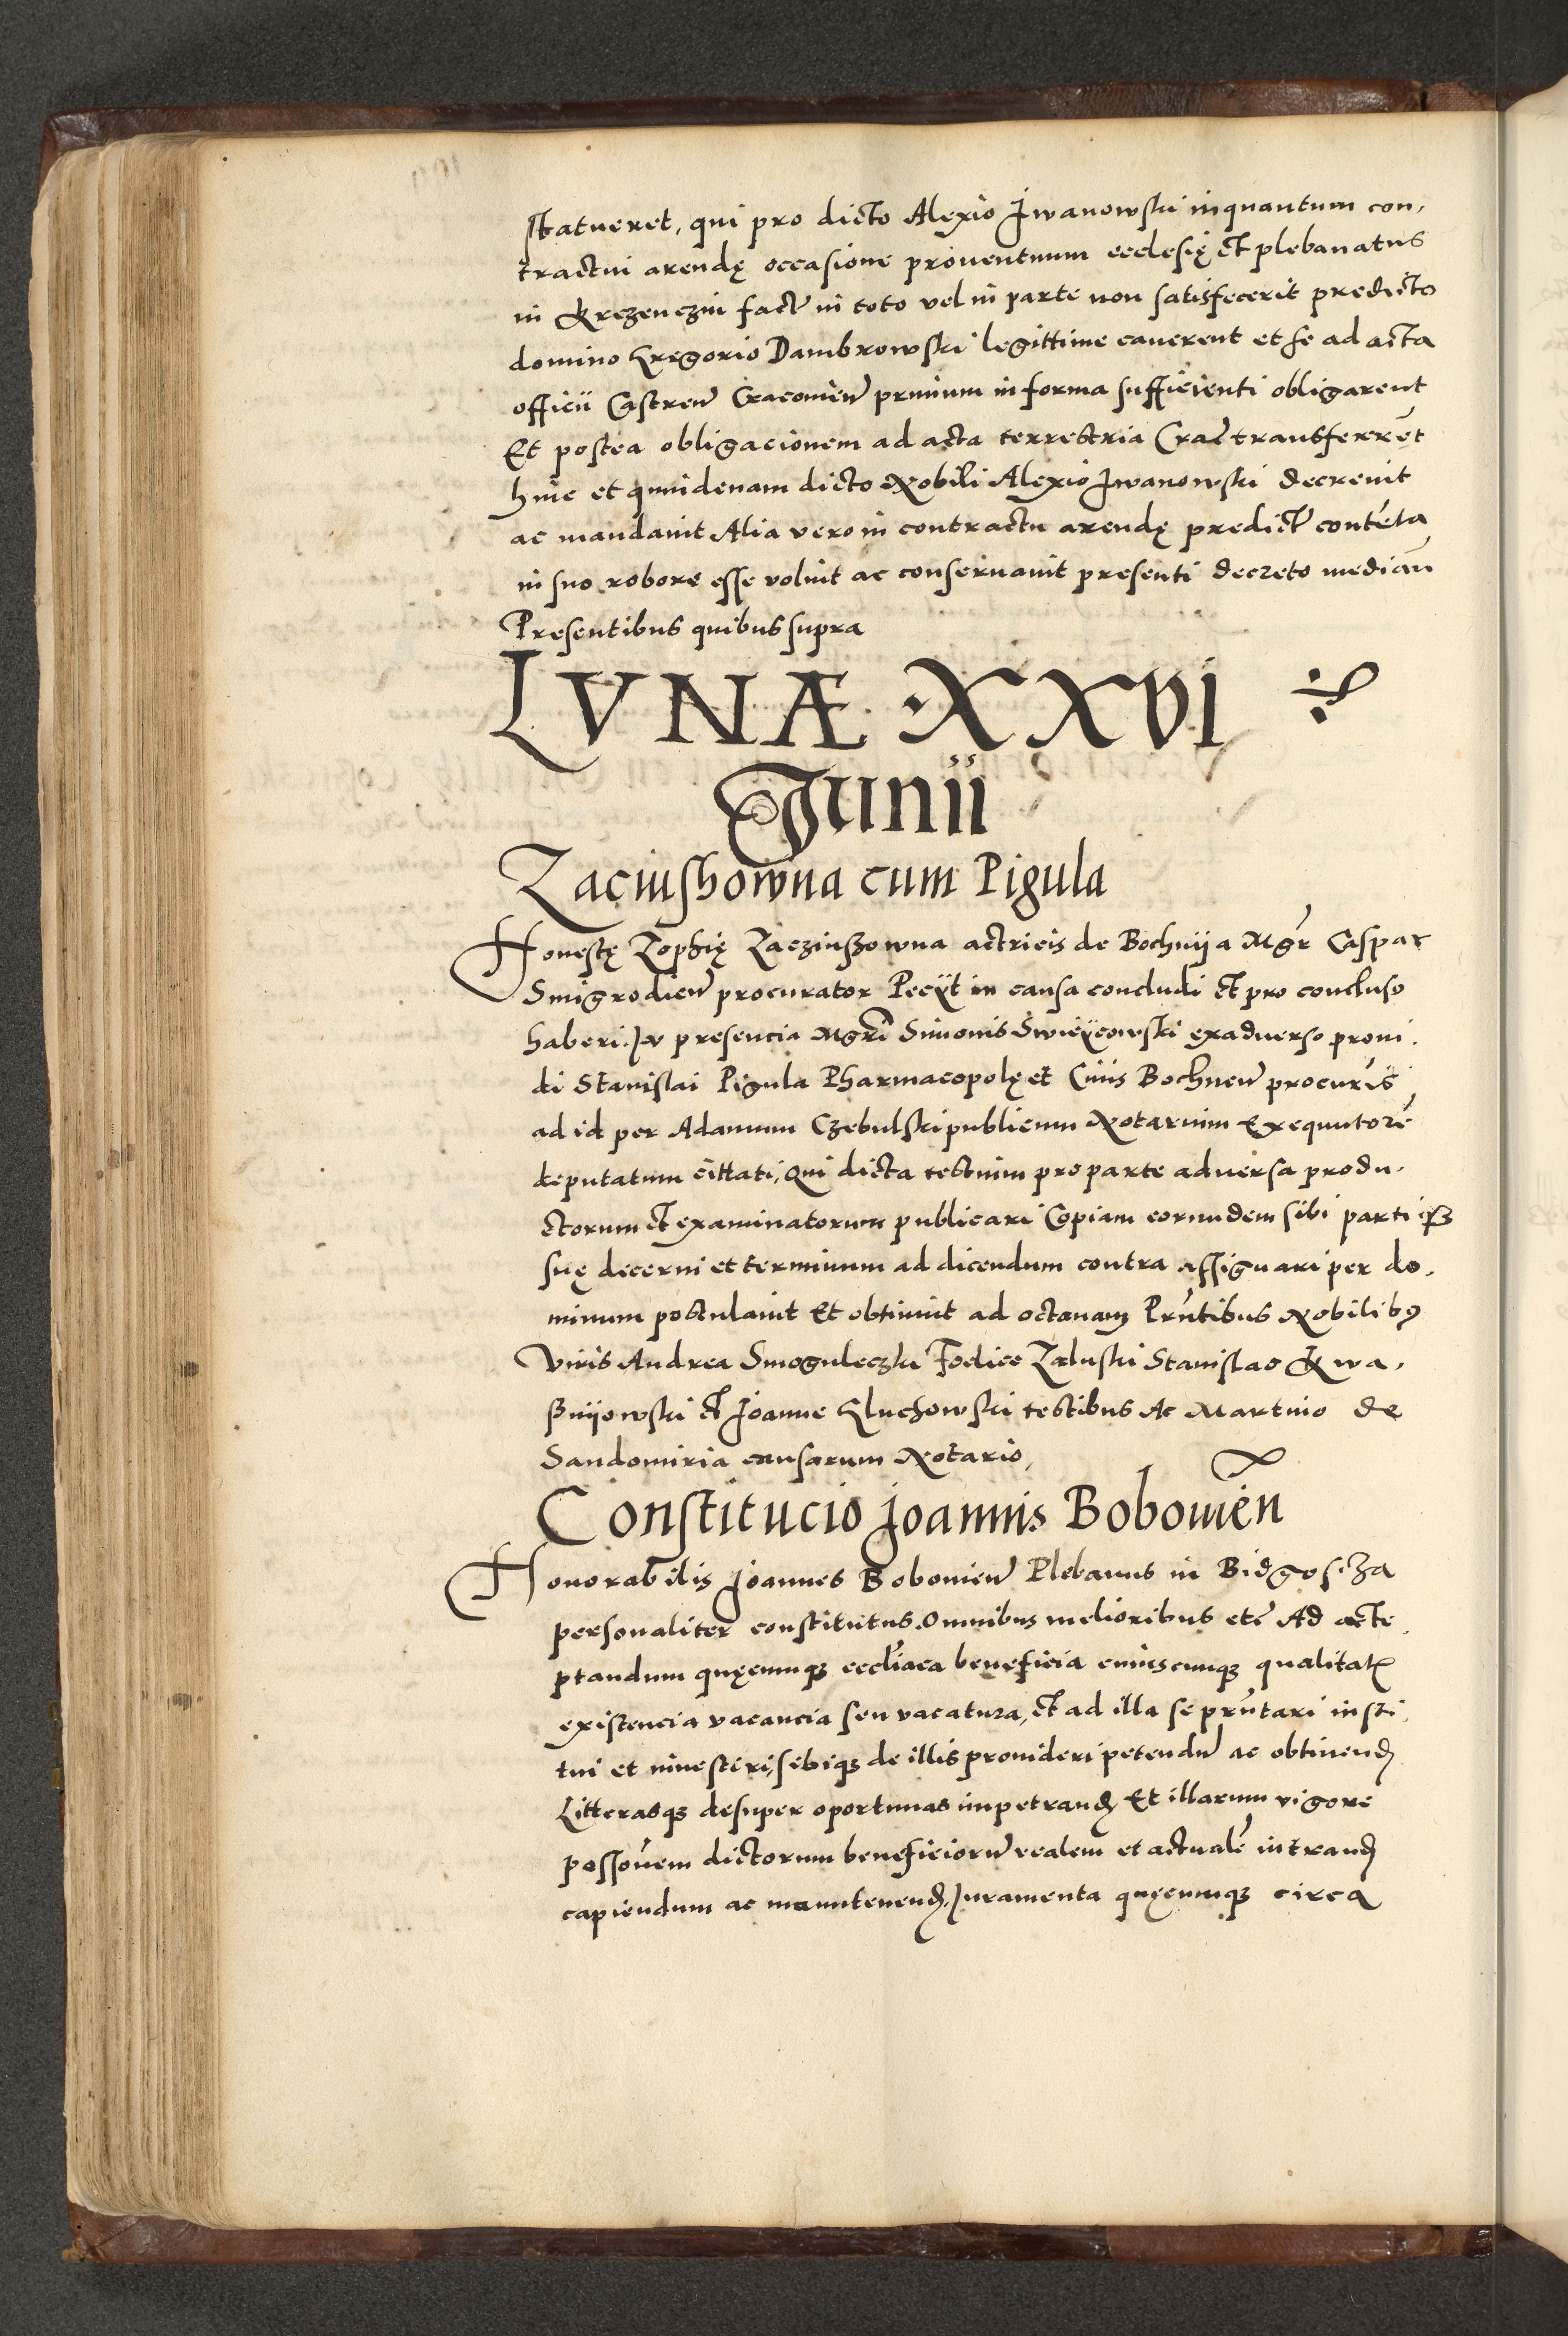 statueret, qui pro dicto Alexio Jwanowski inquantum con,
tractui arendę occasione proventuum ecclesię et plebanatus
in Krzenczin fact in toto vel in parte non satisfecerit predicto
domino Gregorio Dambrowski legittime caverent et se ad acta
officii Castren̄ Cracovien̄ primum in forma sufficienti obligarent
Et postea obligacionem ad acta terrestria Crac̄ transferrēt
hinc et quindenam dicto Nobili Alexio Jwanowski decrevit
ac mandavit Alia vero in contractu arendę predict̄ contēta
in suo robore esse voluit ac conservavit presenti decreto mediañ
Presentibus quibus supra
LVNÆ · XXVI
Junii
Zaciushowna cum Pigula
Honestę Zophię Zacziuszowna actricis de Bochnija Mgr̄ Caspar
Smigrodien̄ procurator Pecijt in causa concludi et pro concluso
haberi. Jn presencia Mgrī Simonis Swieijcowski exadverso provi,
di Stanislai Pigula Pharmacopolę et Civis Bochnen̄ procurīs
ad id per Adamum Czebulski publicum Notarium Exequutorē
deputatum cittati, Qui dicta testium pro parte adversa produ,
ctorum et examinatorum publicari Copiam eorundem sibi partiq₃
suę decerni et terminum ad dicendum contra assignari per do,
minum postulavit Et obtinuit ad octavam Prn̄tibus Nobilibꝰ
Viris Andrea Smoguleczki Foelice Zaluski Stanislao Kwa,
snijowski et Joanne Gluchowski testibus Ac Martino de
Sandomiria causarum Notario,
Constitucio Joannis Bobovien̄
Honorabilis Joannes Bobovien̄ Plebanus in Bidgoscza
personaliter constitutus. Omnibus melioribus etc̄ Ad acce,
ptandum quęcumq₃ eccl̄iaca beneficia cuiuscumq₃ qualitat̄
existencia vacancia seu vacatura, et ad illa se prn̄tari insti,
tui et investiri, sibiq₃ de illis provideri petendū ac obtinend̄
Litterasq₃ desuper oportunas impetrand̄ Et illarum vigore
possōnem dictorum beneficiorū realem et actualē intrand̄
capiendum ac manutenend̄. Juramenta quęcumq₃ circa